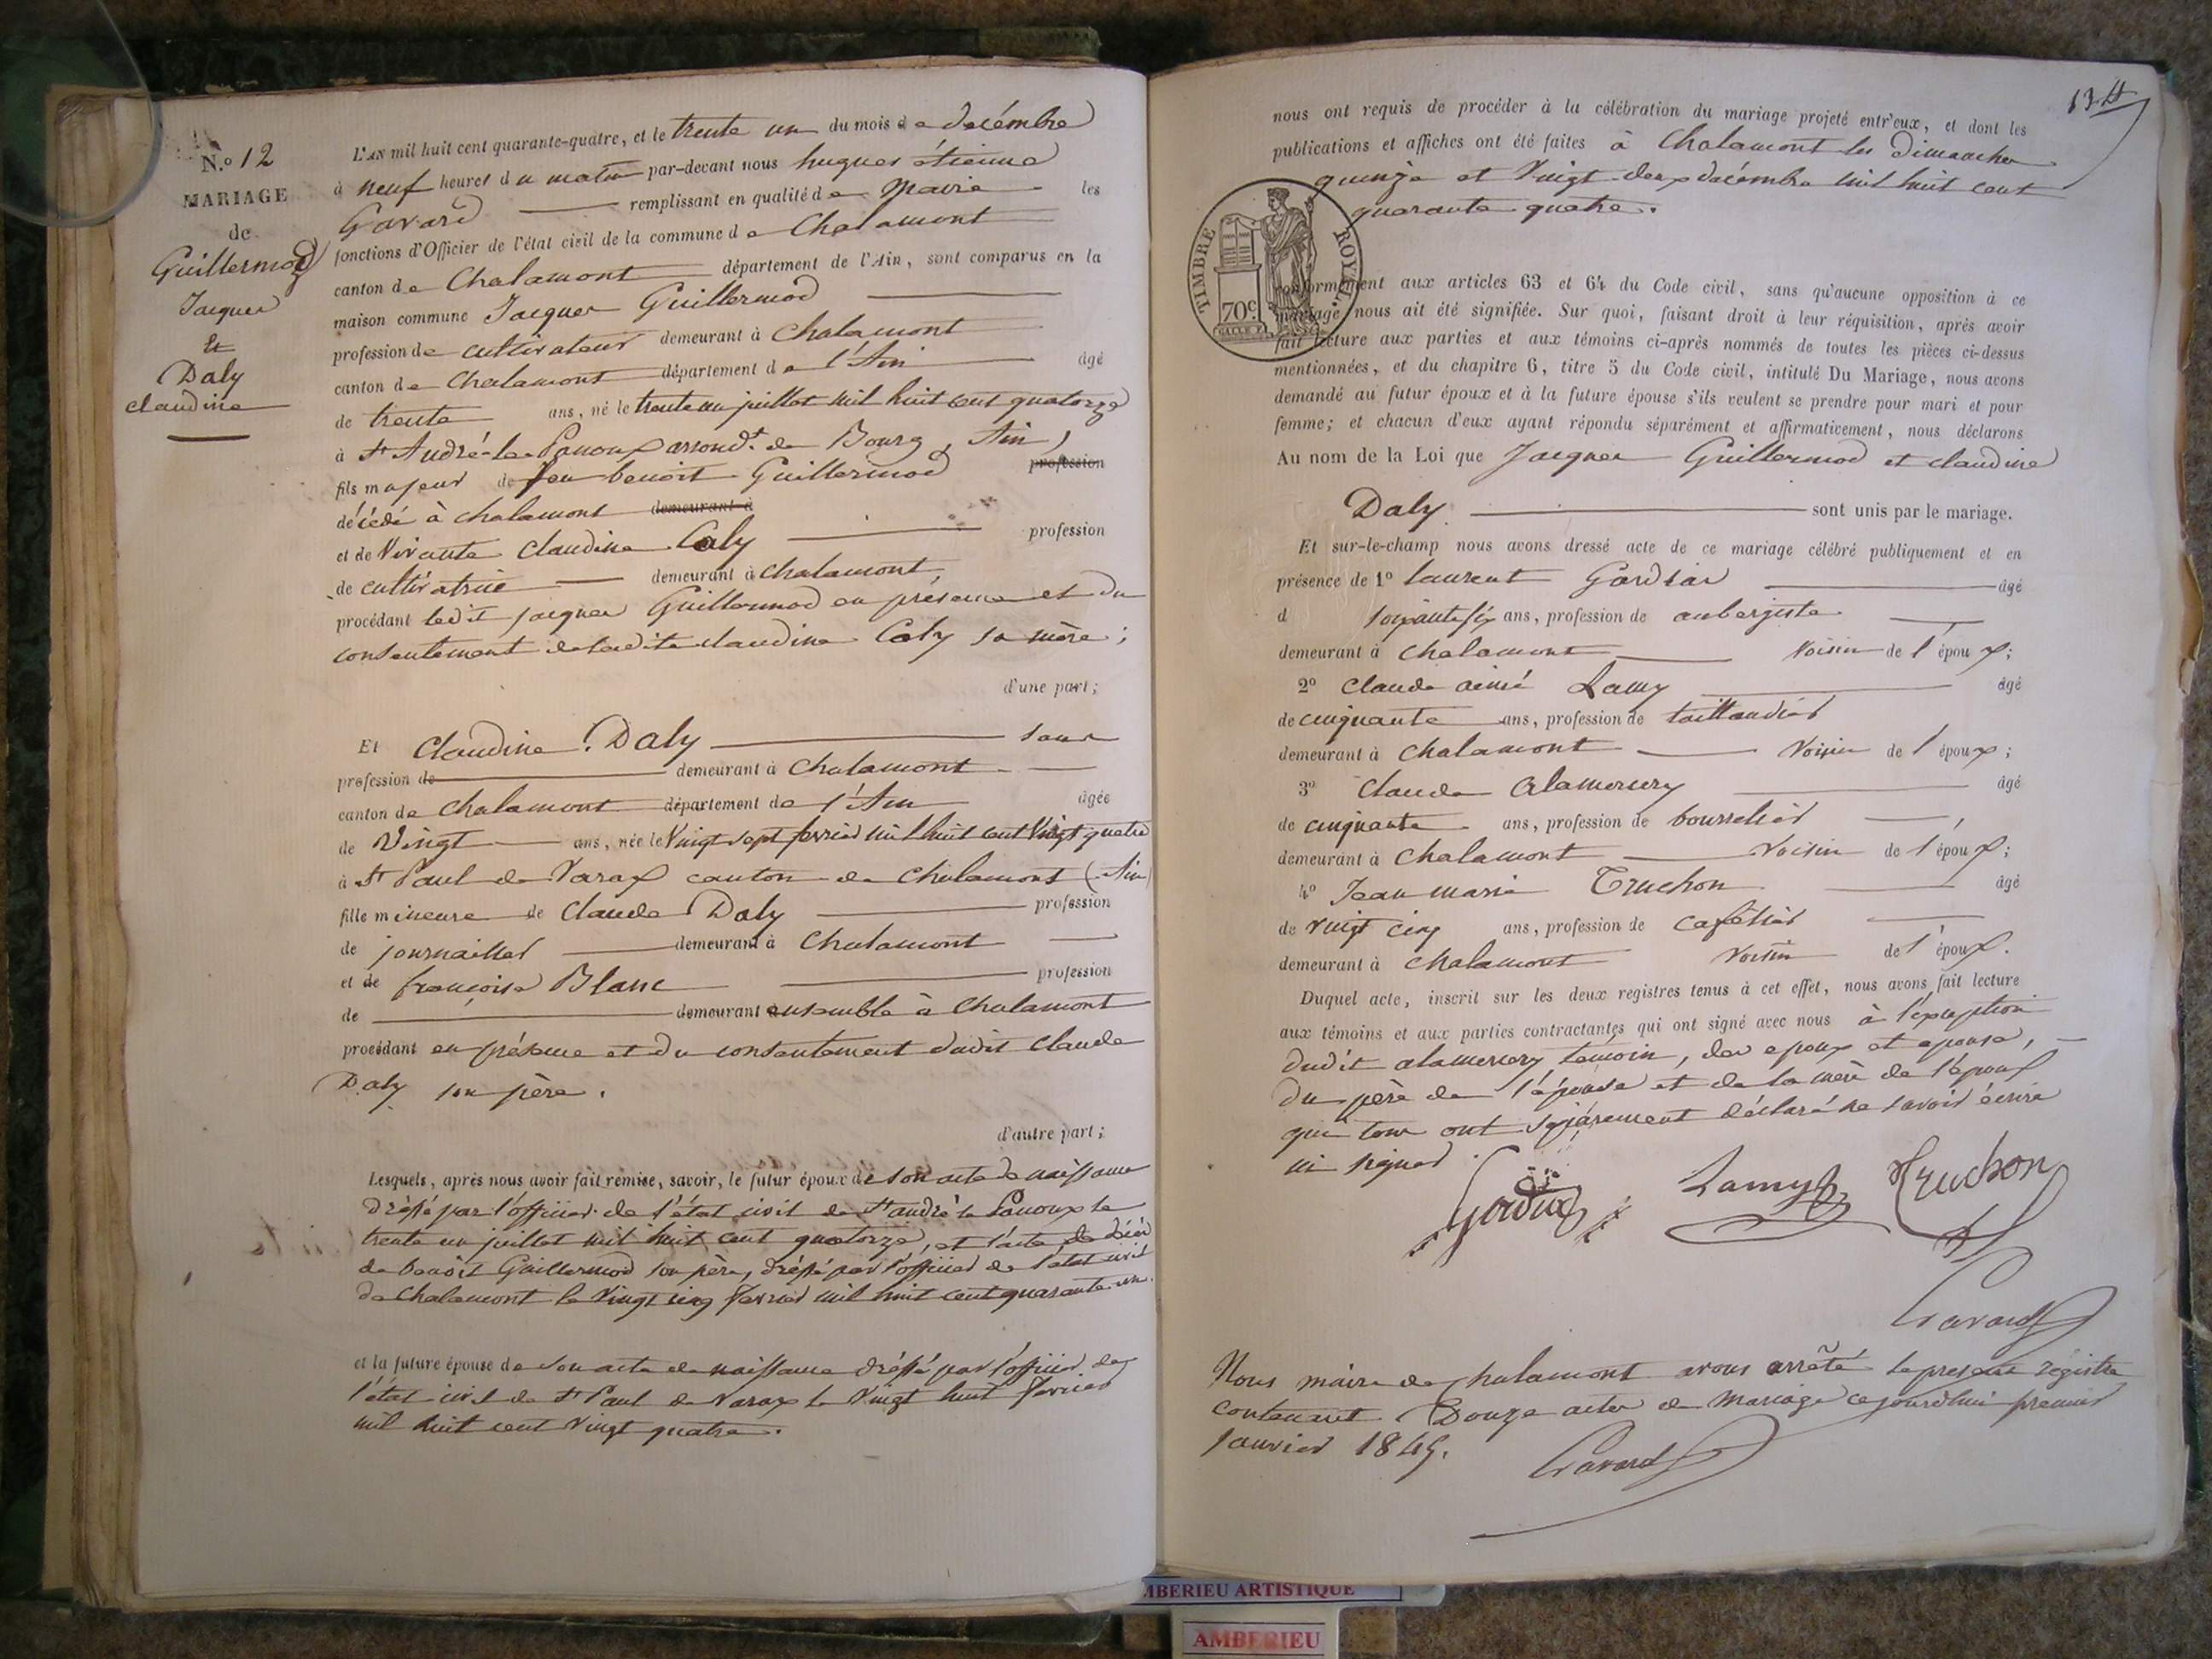 N.º 12
MARIAGE
de
Guillermod
Jacques
Et
Daly
claudine
L'AN mil huit cent quarante-quatre, et le trente un du mois de décembre
à neuf heures du matin par-devant nous hugues étienne
Gavard remplissant en qualité de Maire les
fonctions d'Officier de l'état civil de la commune de Chalamont
canton de Chalamont département de l'Ain, sont comparus en la
maison commune Jacques Guillermod
profession de cultivateur demeurant à Chalamont
canton de Chalamont département de l'Ain âgé
de trente ans, né le trente un juillet mil huit cent quatorze
à St André-le-Panoux arrondt. de Bourg, Ain,
fils majeur de feu benoit Guillermod profession
décédé à chalamont demeurant à
et de Vivante Claudine Caly profession
de cultivatrice demeurant à chalamont,
procédant ledit jacques Guillermod en présence et du
consentement de ladite claudine Caly sa mère;
d'une part;
Et Claudine Daly sans
profession de demeurant à Chalamont
canton de Chalamont département de l'Ain âgée
de Vingt ans, née le Vingt sept fevrier mil huit cent Vingt quatre
à St Paul de Varax canton de Chalamont (Ain)
fille mineure de Claude Daly profession
de journaillier demeurant à Chalamont
et de françoise Blanc profession
de demeurant ensemble à Chalamont
procédant en présence et du consentement dudit Claude
Daly son père.
d'autre part;
Lesquels, après nous avoir fait remise, savoir, le futur époux de son acte de naissance
dréssé par l'officier de l'état civil de St andré le Panoux le
trente un juillet mil huit cent quatorze, et l'acte de décès
de benoit Guillermod son père, dréssé par l'officier de l'état civil
de Chalamont le Vingt cinq fevrier mil huit cent quarante un.
et la future épouse de son acte de naissance dréssé par l'officier de
l'état civil de St Paul de Varax le Vingt huit fevrier
mil huit cent Vingt quatre.
134
nous ont requis de procéder à la célébration du mariage projeté entr'eux, et dont les
publications et affiches ont été faites à Chalamont les dimanches
quinze et Vingt-deux décembre mil huit cent
quarante quatre.
TIMBRE ROYAL
70c
conformément aux articles 63 et 64 du Code civil, sans qu'aucune opposition à ce
mariage nous ait été signifiée. Sur quoi, faisant droit à leur réquisition, après avoir
fait lecture aux parties et aux témoins ci-après nommés de toutes les pièces ci-dessus
mentionnées, et du chapitre 6, titre 5 du Code civil, intitulé Du Mariage, nous avons
demandé au futur époux et à la future épouse s'ils veulent se prendre pour mari et pour
femme; et chacun d'eux ayant répondu séparément et affirmativement, nous déclarons
Au nom de la Loi que Jacques Guillermod et claudine
Daly sont unis par le mariage.
Et sur-le-champ nous avons dressé acte de ce mariage célébré publiquement et en
présence de 1º laurent âgé
d ans, profession de aubergiste
demeurant à chalamont Voisin de l'époux;
2º Claude aimé Lamy âgé
de cinquante ans, profession de taillandier
demeurant à Chalamont Voisin de l'époux;
3º Claude Alamercery âgé
de cinquante ans, profession de bourrelier
demeurant à Chalamont Voisin de l'époux;
4º Jean marie Truchon âgé
de vingt cinq ans, profession de cafétier
demeurant à Chalamont Voisin de l'époux.
Duquel acte, inscrit sur les deux registres tenus à cet effet, nous avons fait lecture
aux témoins et aux parties contractantes qui ont signé avec nous à l'exception
dudit alamercery témoin, des epoux et epouse,
du père de l'épouse et de la mère de l'époux
qui tous ont séparement déclaré ne savoir écrire
ni signer.
Lamy Truchon
Gavard
Nous maire de Chalamont avons arrêté le present régistre
contenant Douze actes de Mariage cejourd'hui premier
Janvier 1845.
Gavard
MBERIEU ARTISTIQUE
AMBERIEU